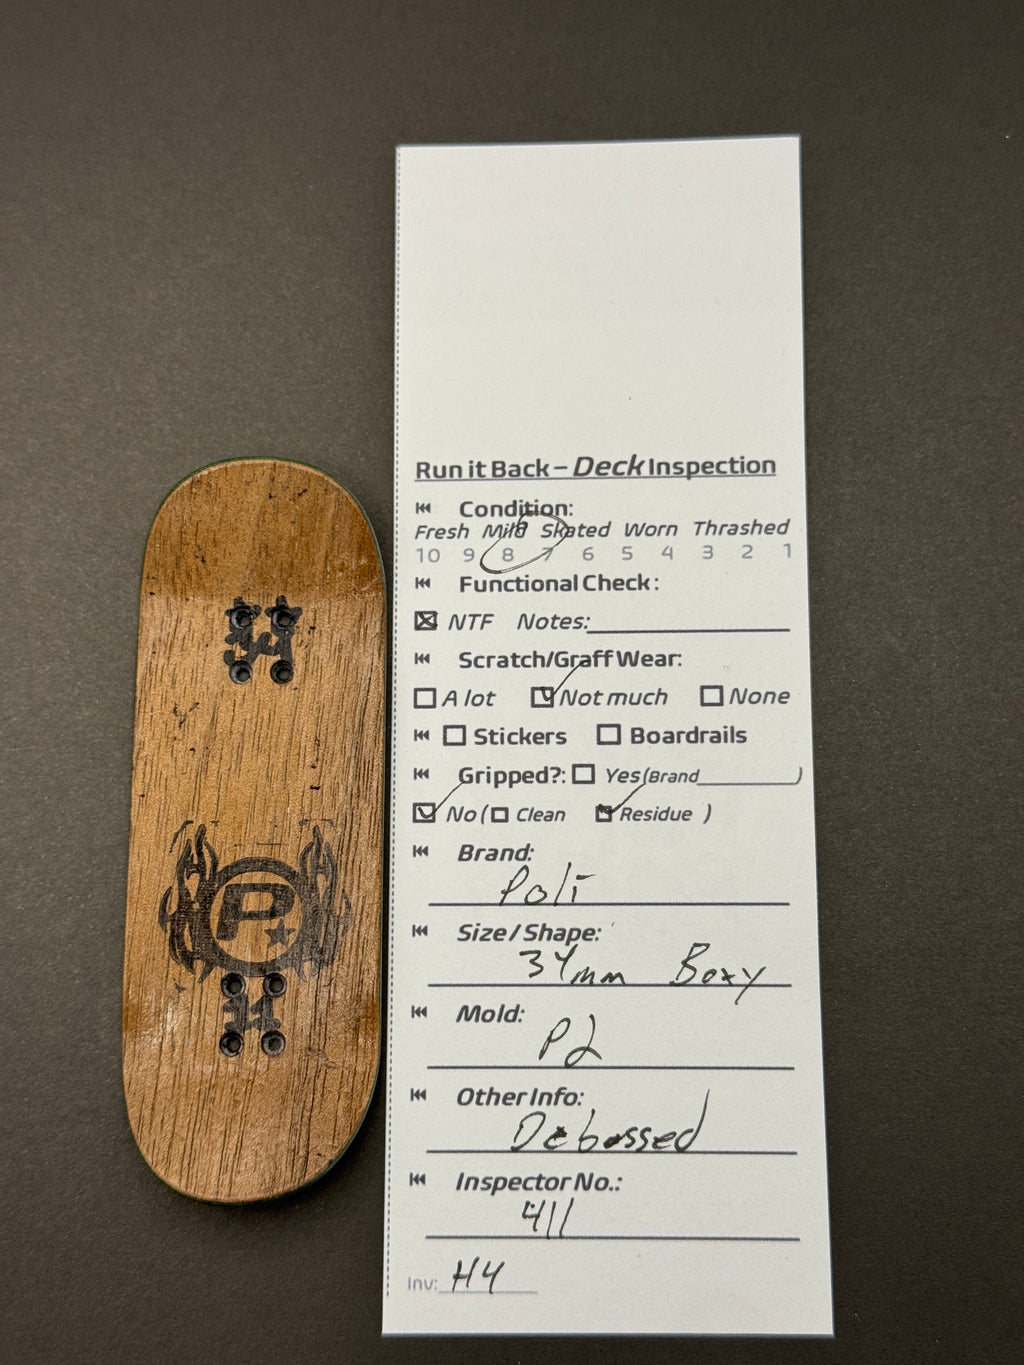 P
Run it Back – Deck Inspection
Condition:
Fresh Mild Skated Worn Thrashed
10 9 8 7 6 5 4 3 2 1
Functional Check:
NTF Notes:
Scratch/Graff Wear:
A lot Not much None
Stickers Boardrails
Gripped?: Yes (Brand )
No ( Clean Residue )
Brand:
Size / Shape:
34mm Boxy
Mold:
P2
Other Info:
Debossed
Inspector No.:
411
Inv: H4